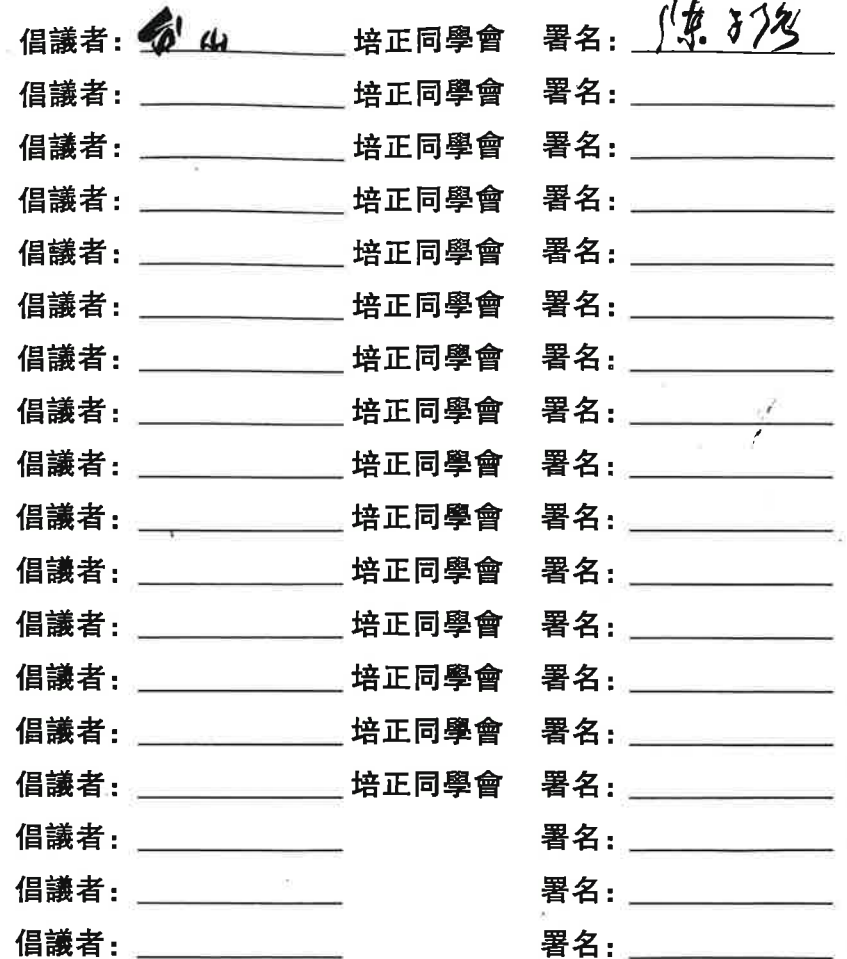 倡議者：台山 培正同學會 署名：陳子
倡議者： 培正同學會 署名：
倡議者： 培正同學會 署名：
倡議者： 培正同學會 署名：
倡議者： 培正同學會 署名：
倡議者： 培正同學會 署名：
倡議者： 培正同學會 署名：
倡議者： 培正同學會 署名：
倡議者： 培正同學會 署名：
倡議者： 培正同學會 署名：
倡議者： 培正同學會 署名：
倡議者： 培正同學會 署名：
倡議者： 培正同學會 署名：
倡議者： 培正同學會 署名：
倡議者： 培正同學會 署名：
倡議者： 署名：
倡議者： 署名：
倡議者： 署名：